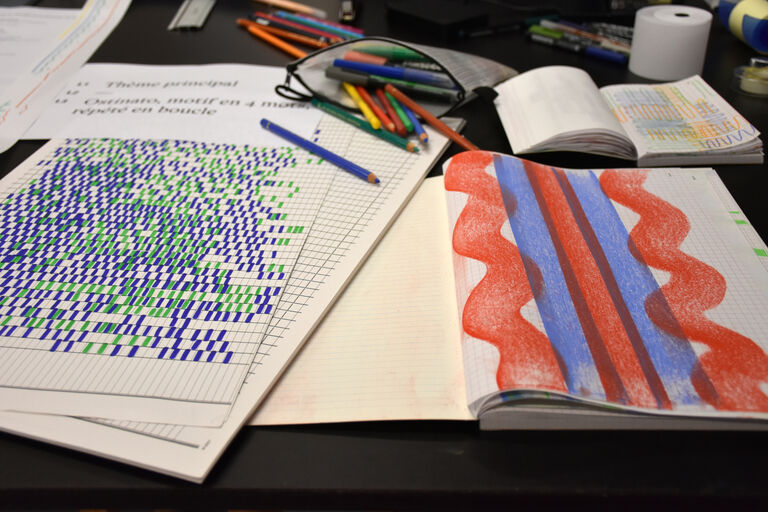 L1 Thème principal
L2 Ostinato, motif en 4 mots,
répété en boucle